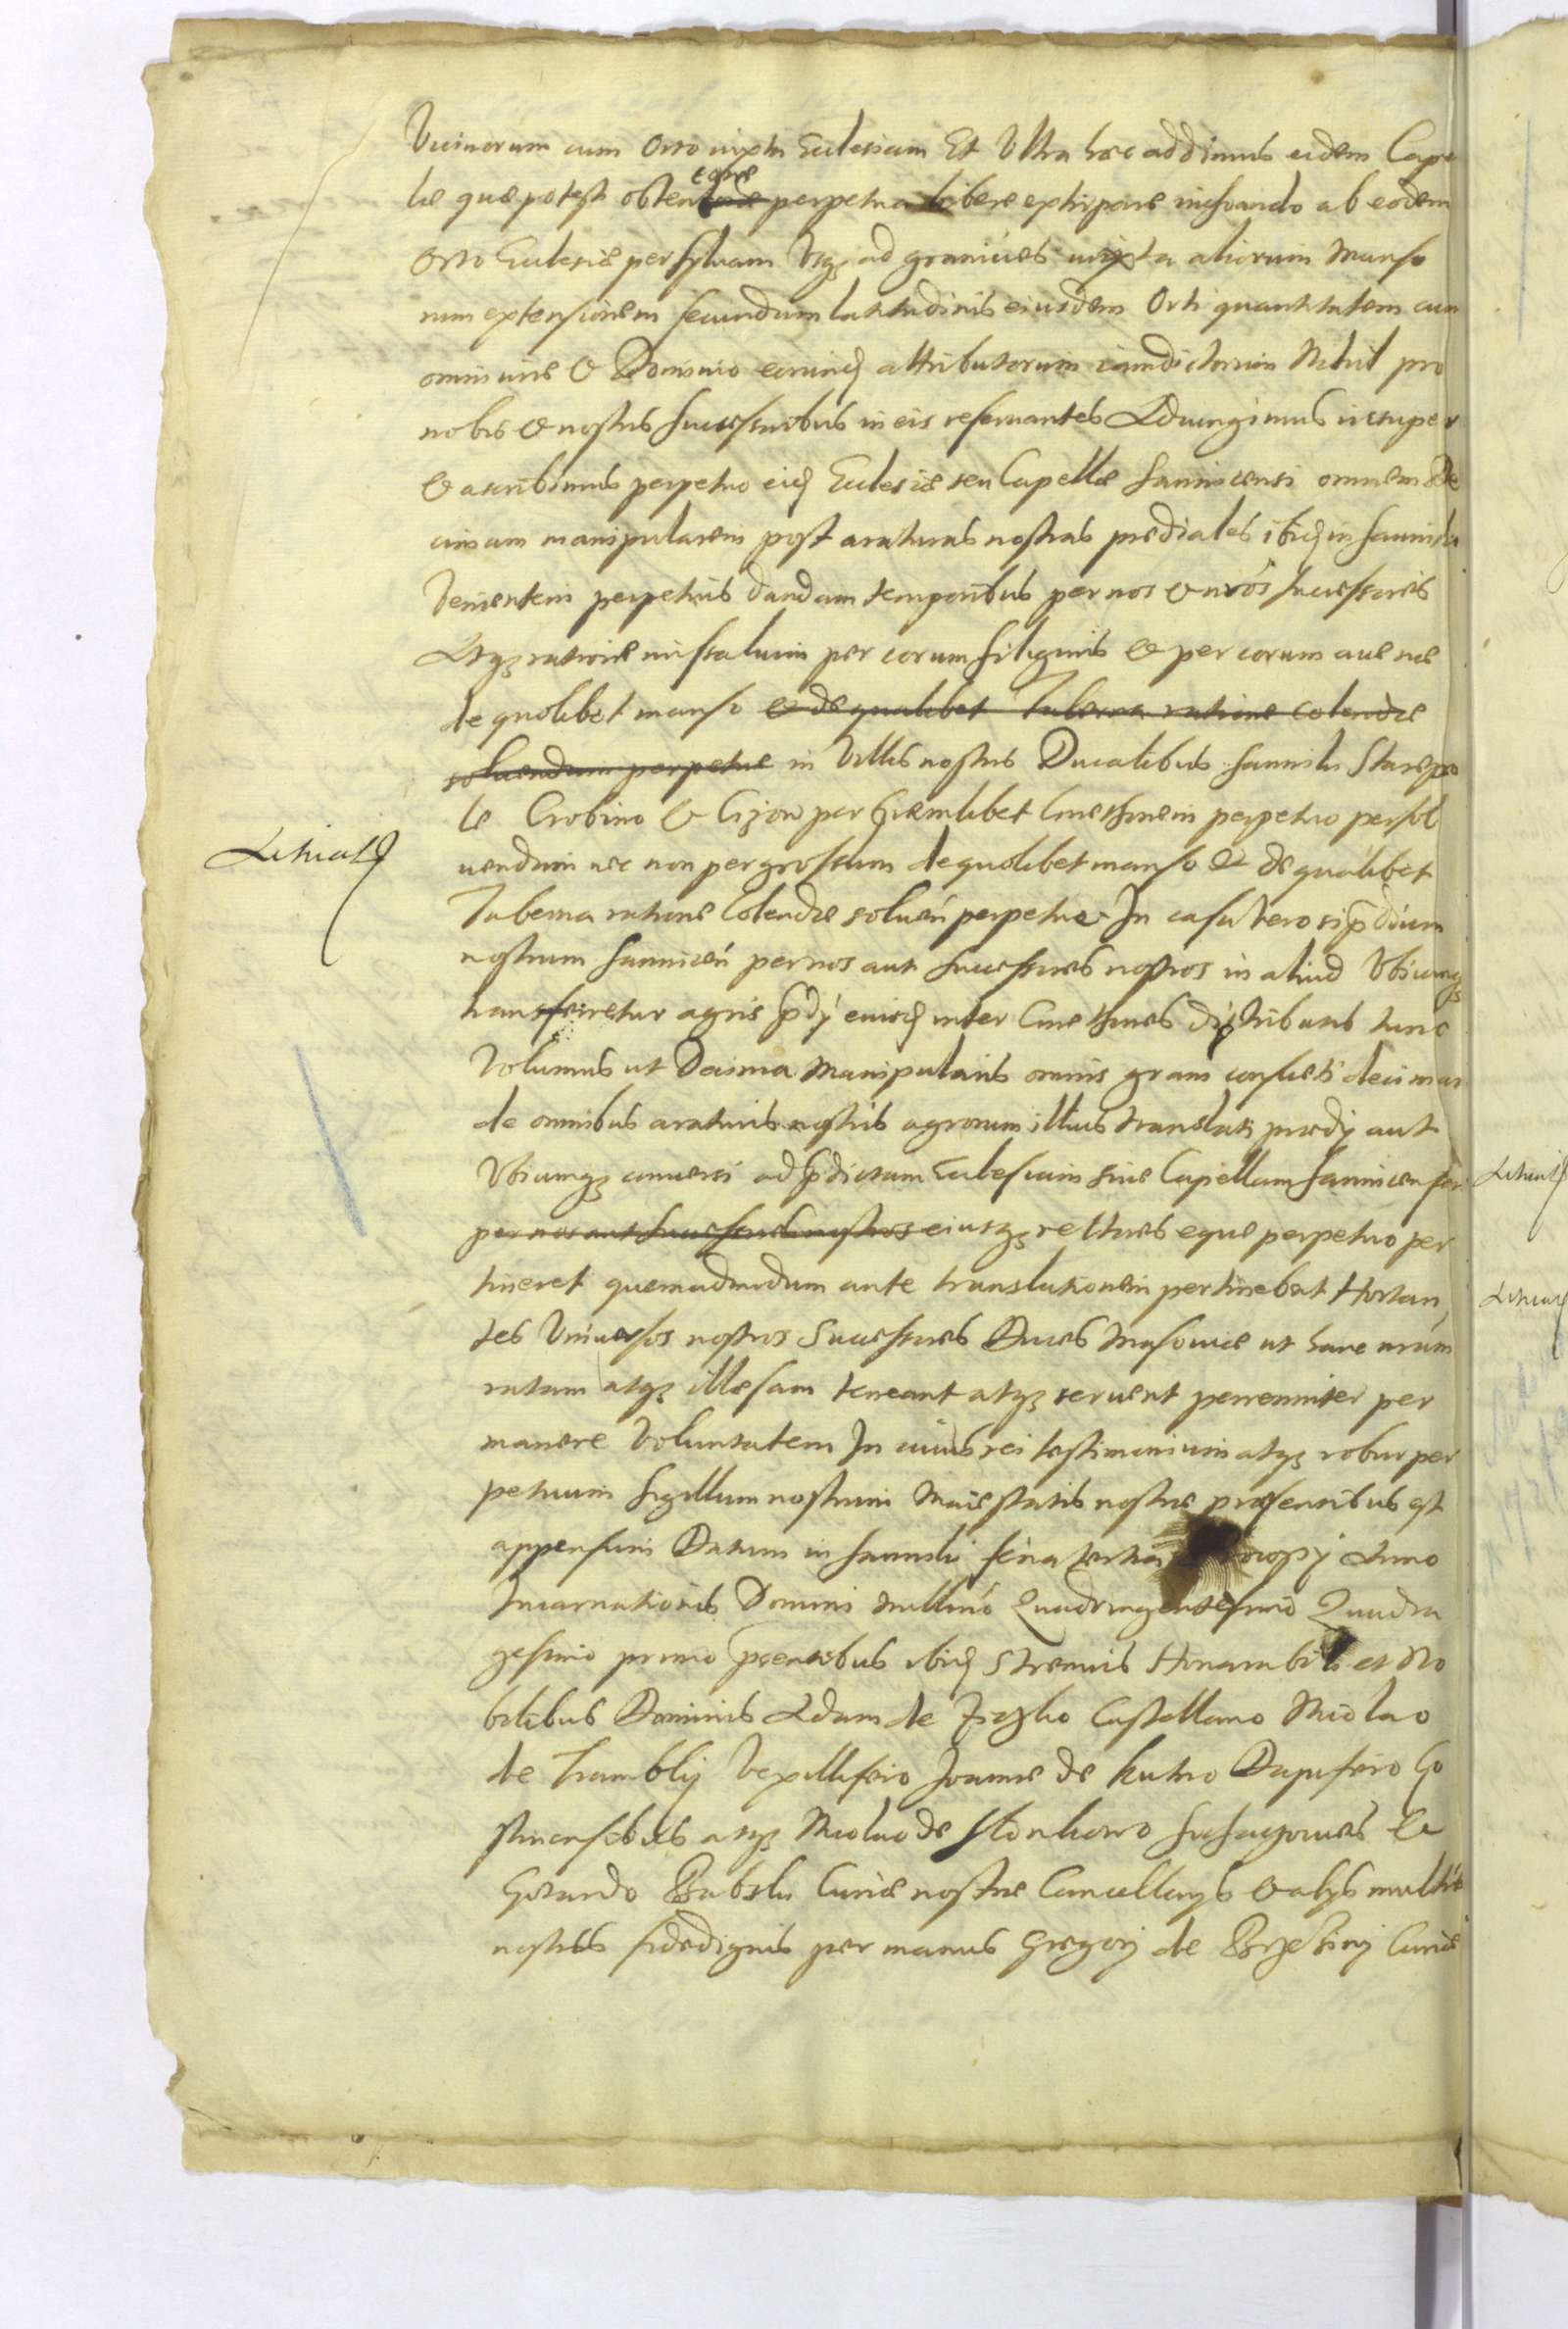 Vicinorum cum Orto iuxta Ecclesiam Et Vltra hæc addimus eidem Cape
læ quæ potest perpetua libere extirpare inchoando ab eodem
Orto Ecclesiæ per syluam Vsqz ad granicies iuxta aliorum Manso
rum extensionem secundum latitudinis eiusdem Orti quantitatem cum
omni iure & Dominio eorund attributorum iamdictorum Nihil pro
nobis & nostris successoribus in eis reseruantes Adiungimus insuper
& ascribimus perpetuo eid Ecclesiæ seu Capellæ Sannicensi omnem De
cimam manipularem post araturas nostras prædiales ibid in Sanniki
Venientem perpetuis dandam temporibus per nos & nros successores
Atqz ratione missalium per corum siliginis & per corum auenæ
de quolibet manso & de qualibet Taberna ratione Colendæ
soluendum perpetue in Villis nostris Ducalibus Sanniki Starepo
le Crobino & Cizow per quemlibet Cmethonem perpetuo persol
uendum nec non per grossum de quolibet manso & de qualibet
Taberna ratione Colendæ soluen perpetue In casu Vero si pdium
nostrum Sannicen per nos aut successores nostros in aliud Vbicunqz
transferretur agris pdy eiusd inter Cmethones distributis tunc
Volumus ut Decima Manipularis omnis grani consueti decimari
de omnibus araturis nostris agrorum illius translati prædy aut
Vbicunqz conuersi ad pdictam Ecclesiam siue Capellam Sannicensem
per nos aut successores nostros eiusqz rectores eque perpetuo per
tineret quemadmodum ante translationem pertinebat Hortan
tes Vniuersos nostros Successores Duces Masouiæ ut hanc nram
ratam atqz illæsam teneant atqz seruent perenniter per
manere Voluntatem In cuius rei testimonium atqz robur per
petuum sigillum nostrum Maiestatis nostræ præsentibus est
appensum Datum in Sanniki feria tertia Anno
Incarnationis Domini Millimo Quadringentesimo Quadra
gesimo primo psentibus ibid Strenuis Honorabili et No
bilibus Dominis Adam de Castellano Nicolao
de Trambky Vexillifero Joanne de Kutno Dapifero Go
stinensibus atqz Nicolao de &
Gotardo Babsky Curiæ nostræ Cancellarys & alys multis
nostris fidedignis per manus Gregory de Brzeziny Curiæ